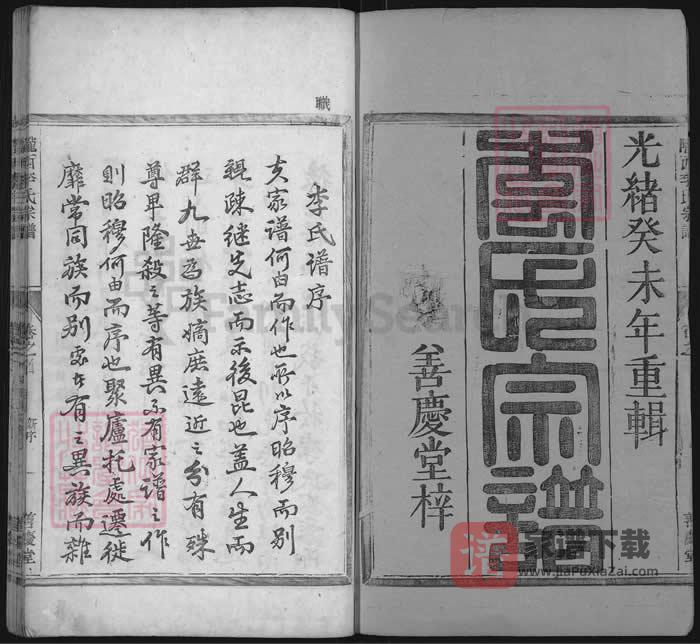 光緒癸未年重輯
李氏宗譜
善慶堂梓
職
李氏谱序
夫家谱何由而作也所以序昭穆而别
親疎继先志而示後昆也盖人生而
群九世为族嫡庶遠近之分有殊
尊卑隆殺之等有異不有家谱之作
則昭穆何由而序也聚廬托處遷徙
靡常同族而别
有之異族而雜
隴西李氏宗譜
卷之首
新序
善慶堂
善慶堂
FamilySearch
谱
家谱下载
www.jiaPuXiaZai.com